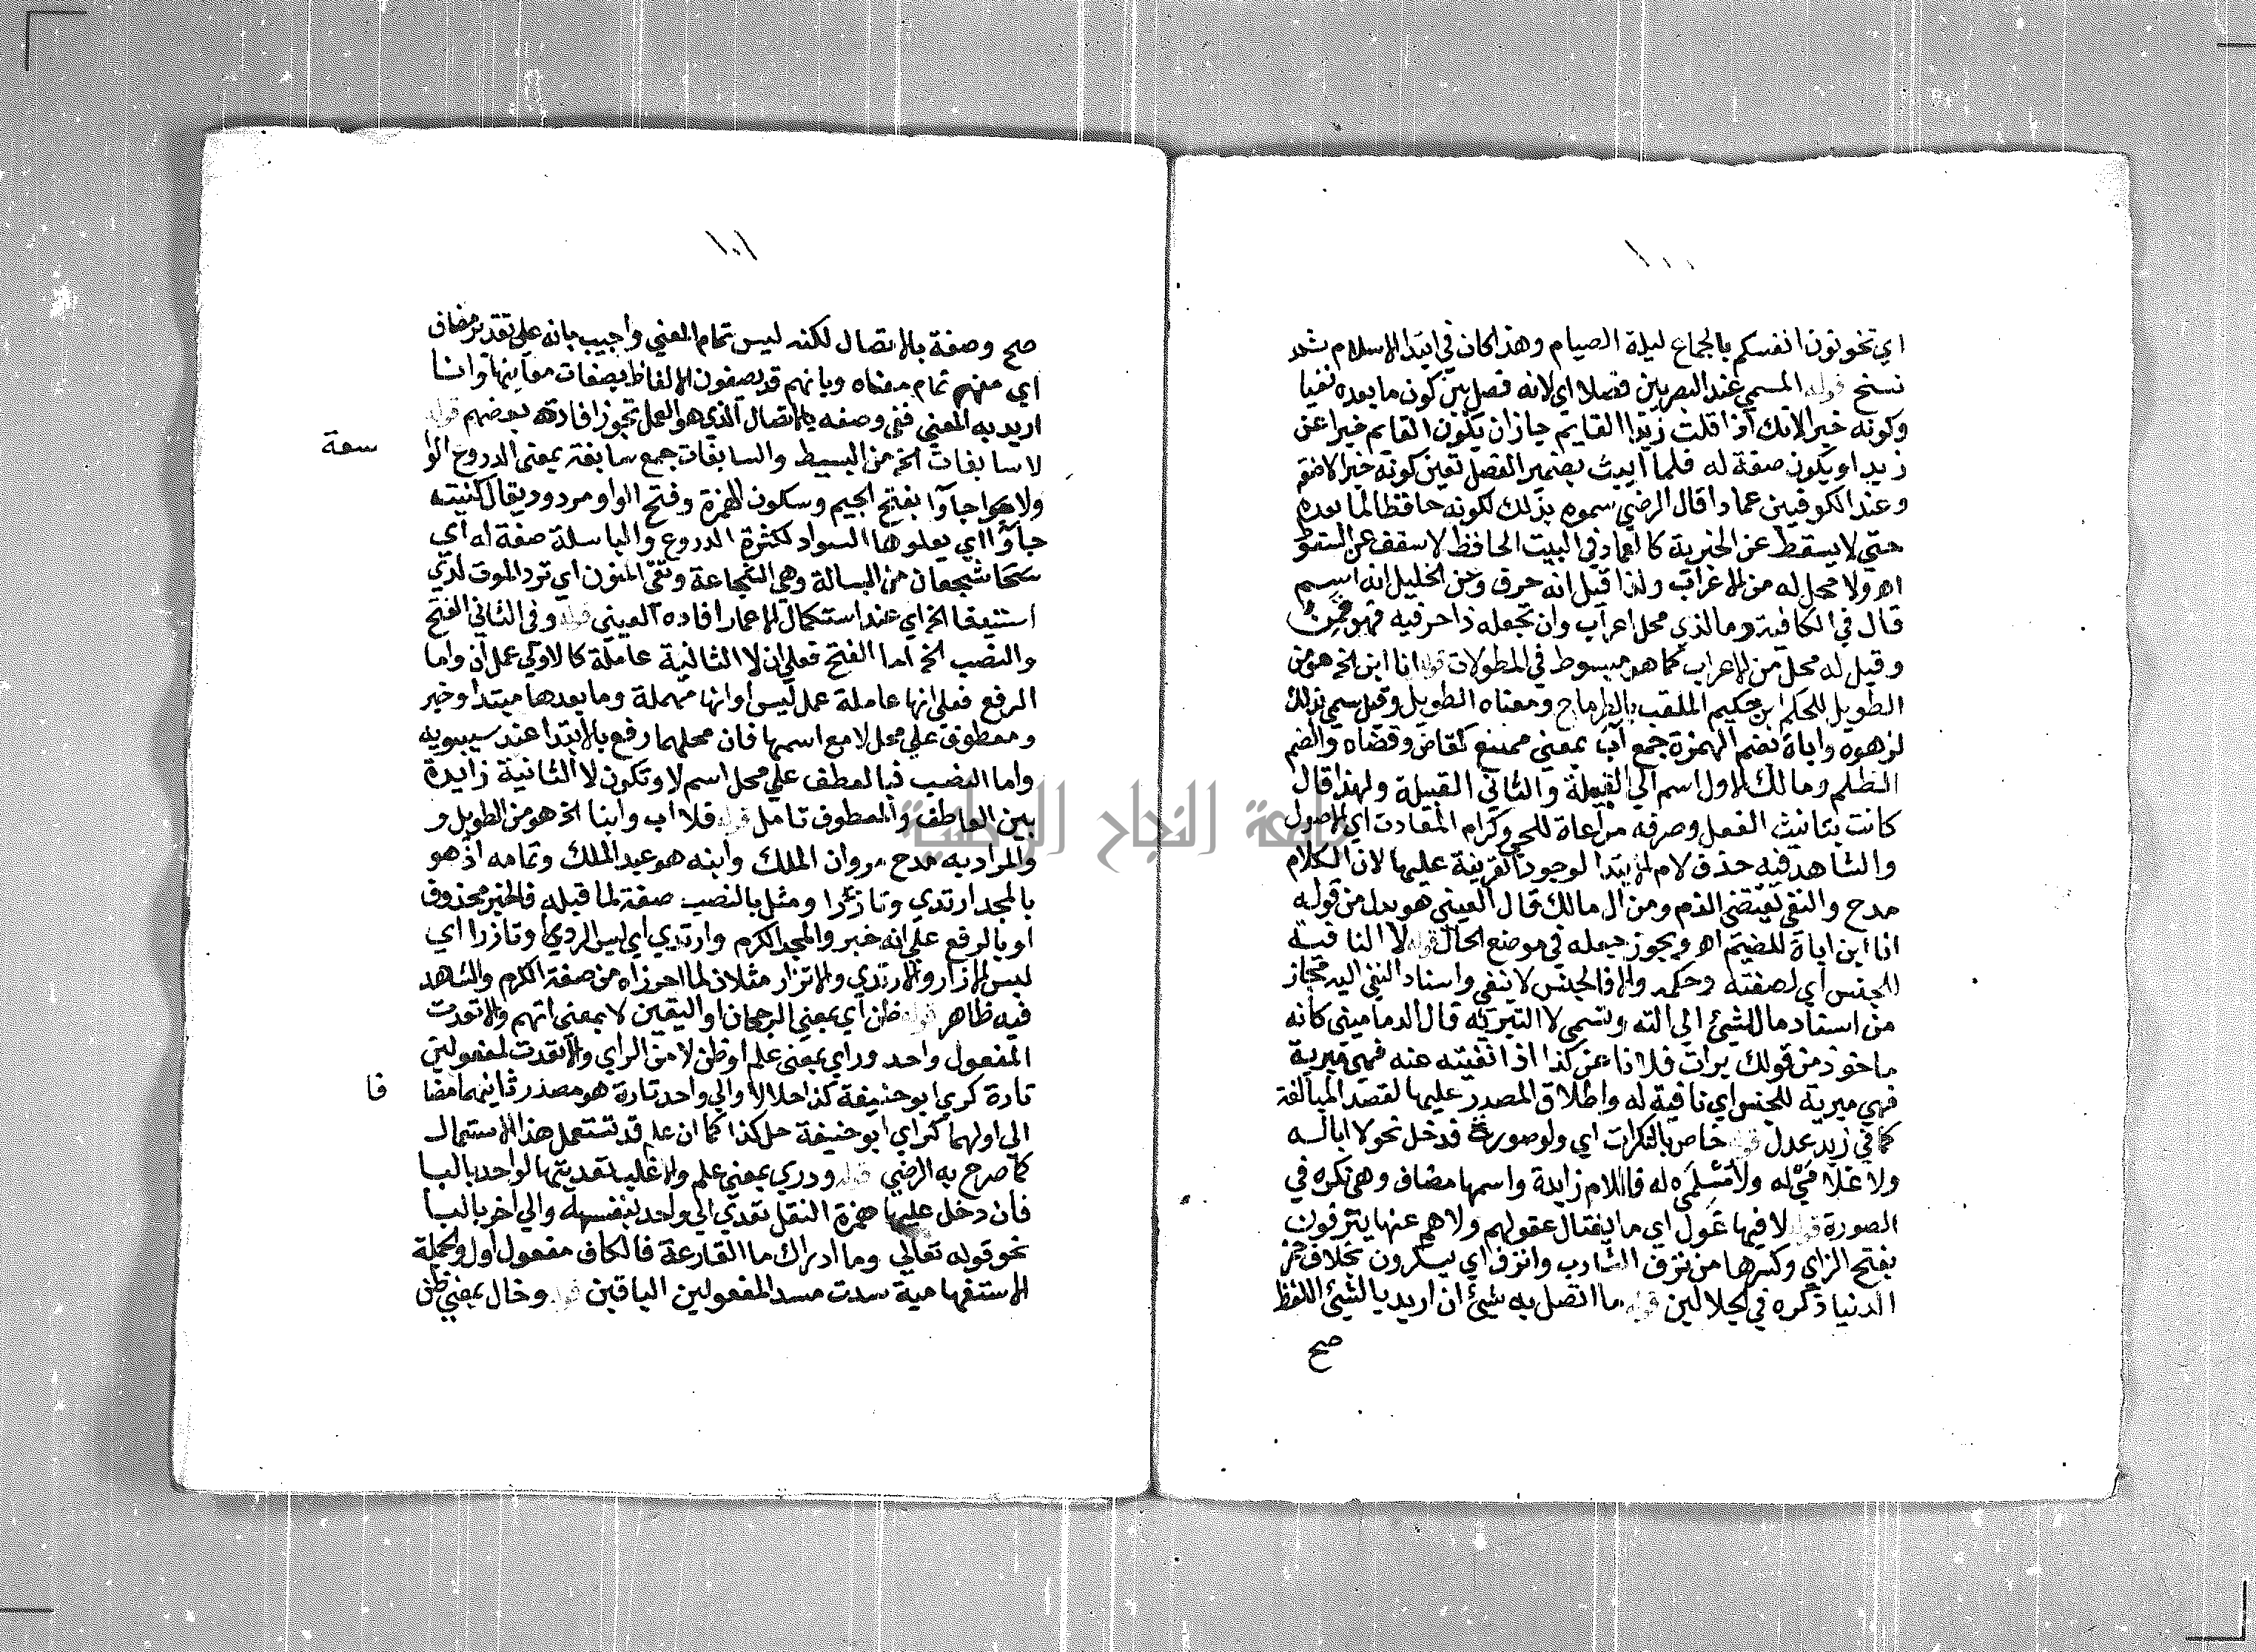 ١٠٠
اي تخونون انفسكم بالجماع ليلة الصيام وهذا كان في ابتدا الاسلام ثم
نسخ قوله المسمي عند البصريين فصلا اي لانه فصل بين كون ما بعده نفيا
وكونه خبرا لانك اذا قلت زيدا القايم جاز ان يكون القايم خبرا عن
زيد او يكون صفة له فلما اتيت بضمير الفصل تعين كونه خبرا لا صفة
وعند الكوفيين عمادا قال الرضي سموه بذلك لكونه حافظا لما بعده
حتي لا يسقط عن الخبرية كالعماد في البيت الحافظ لاسقف عن السقوط
اه ولا محل له من الاعراب ولذا قيل انه حرف وعن الخليل انه اسم
قال في الكافية وما لذي محل اعراب وان تجعله ذا حرفيه فهو قمن
وقيل له محل من الاعراب كما هو مبسوط في المطولات قوله انا ابن الخ هو من
الطويل للحكم ابن حكيم الملقب بالطرماح ومعناه الطويل وقيل سمي بذلك
لزهوه واباة بضم الهمزة جمع آب بمعني ممتنع كقاض وقضاه والضم
الظلم ومالك الاول اسم ابي القبيلة والثاني القبيلة ولهذا قال
كانت بتانيث الفعل وصرفه مراعاة للحي وكرام المعادن اي الاصول
والشاهد فيه حذف لام الابتدا لوجود القرينة عليها لان الكلام
مدح والنفي يقتضي الذم ومن ال مالك قال العيني هو بدل من قوله
انا ابن اباة للضيم اه ويجوز جعله في موضع الحال قوله لا النافية
للجنس اي لصفته وحكمه والا فالجنس لا ننفي واسناد النفي اليه مجاز
من اسناد ما للشئ الي الته وتسمي لا التبرئه قال الدماميني كانه
ماخوذ من قولك برات فلانا عن كذا اذا نفيته عنه فهي مبرية
فهي مبرية للجنس اي نافية له واطلاق المصدر عليها لقصد المبالغة
كما في زيد عدل قوله خاص بالنكرات اي ولو صورة فدخل نحو لا ابا له
ولا غلامي له ولا مسلمي له فاللام زايدة واسمها مضاف وهي نكره في
الصورة قوله لا فيها غول اي ما يغتال عقولهم ولا هم عنها ينزفون
بفتح الزاي وكسرها من نزف الشارب وانزف اي يسكرون بخلاف خمر
الدنيا ذكره في الجلالين قوله ما اتصل به شئ ان اريد بالشئ اللفظ
صح
١٠١
صح وصفة بالاتصال لكنه ليس تمام المعني واجيب بانه علي تقدير مضاف
اي مفهم تمام معناه وبانهم قد يصفون الالفاظ بصفات معانيها وانشا
اريد به المعني ففي وصفه بالاتصال الذي هو العمل تجوز افادته بعضهم قوله
لا سابغات الخ من البسيط والسابغات جمع سابغة بمعني الدروع الوا
سعة
ولا هوا جاوا بفتح الجيم وسكون الهمزة وفتح الواو مردود يقال كتيبه
جاوا اي يعلوها السواد لكثرة الدروع والباسلة صفة له اي
شجعان من البسالة وهي الشجاعة وتقي المنون اي ترد الموت لدي
استيفا الخ اي عند استكمال الاعمار افاده العيني قوله وفي الثاني الفتح
والنصب الخ اما الفتح فعلي ان لا الثانية عاملة كالاولي عمل ان واما
الرفع فعلي انها عاملة عمل ليس او انها مهملة وما بعدها مبتدا وخبر
ومعطوف علي محل لا مع اسمها فان محلهما رفع بالابتدا عند سيبويه
واما النصب فبالعطف علي محل اسم لا وتكون لا الثانية زايدة
بين العاطف والمعطوف تامل قوله فلا اب وابنا الخ هو من الطويل و
والمراد به مدح مروان الملك وابنه هو عبد الملك وتمامه اذ هو
بالمجد ارتدي وتازرا ومثل بالنصب صفة لما قبله فالخبر محذوف
او بالرفع علي انه خبر والمجد الكرم وارتدي اي لبس الردي وتازرا اي
لبس الازار والارتدي والاتزار مثلان لما احوزاه من صفة الكرم والشاهد
فيه ظاهر قوله ظن اي بمعني الرجحان او اليقين لا بمعني اتهم والا تعدت
المفعول واحد وراي بمعني علم او ظن لا من الراي والا تعدت لمفعولين
تارة كراي ابو حنيفة كذا حلالا والي واحد تارة هو مصدر ثانيهما مضا
فا
الي اولهما كراي ابو حنيفة حل كذا كما ان علم قد تستعمل هذا الاستعمال
كما صرح به الرضي قوله ودري بمعني علم والاغلب تعديتها لواحد بالبا
فان دخل عليها همزة النقل تعدي الي واحد بنفسها والي اخر بالبا
نحو قوله تعالي وما ادراك ما القارعة فالكاف مفعول اول والجملة
الاستفهامية سدت مسد المفعولين الباقين قوله وخال بمعني ظن
جامعة النجاح الوطنية